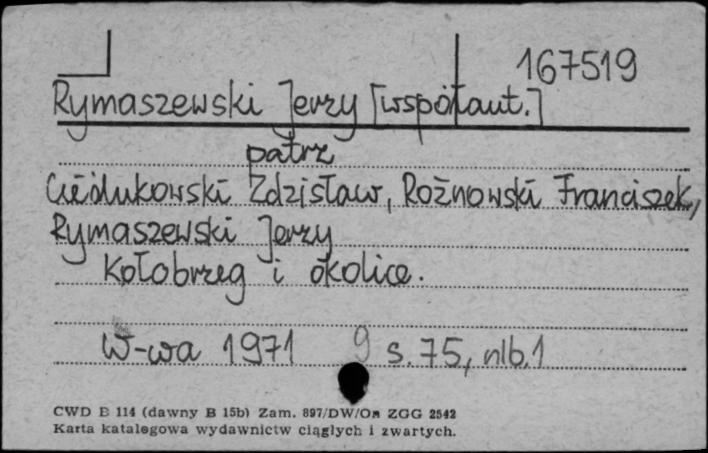 167519
Rymaszewski Jerzy [współaut.]
patrz
Ciećlukowski Zdzisław, Rożnowski Franciszek,
Rymaszewski Jerzy
Kołobrzeg i okolice.
W-wa 1971 9 s. 75, nlb. 1
CWD B 114 (dawny B 15b) Zam. 897/DW/Om ZGG 2542
Karta katalogowa wydawnictw ciągłych i zwartych.